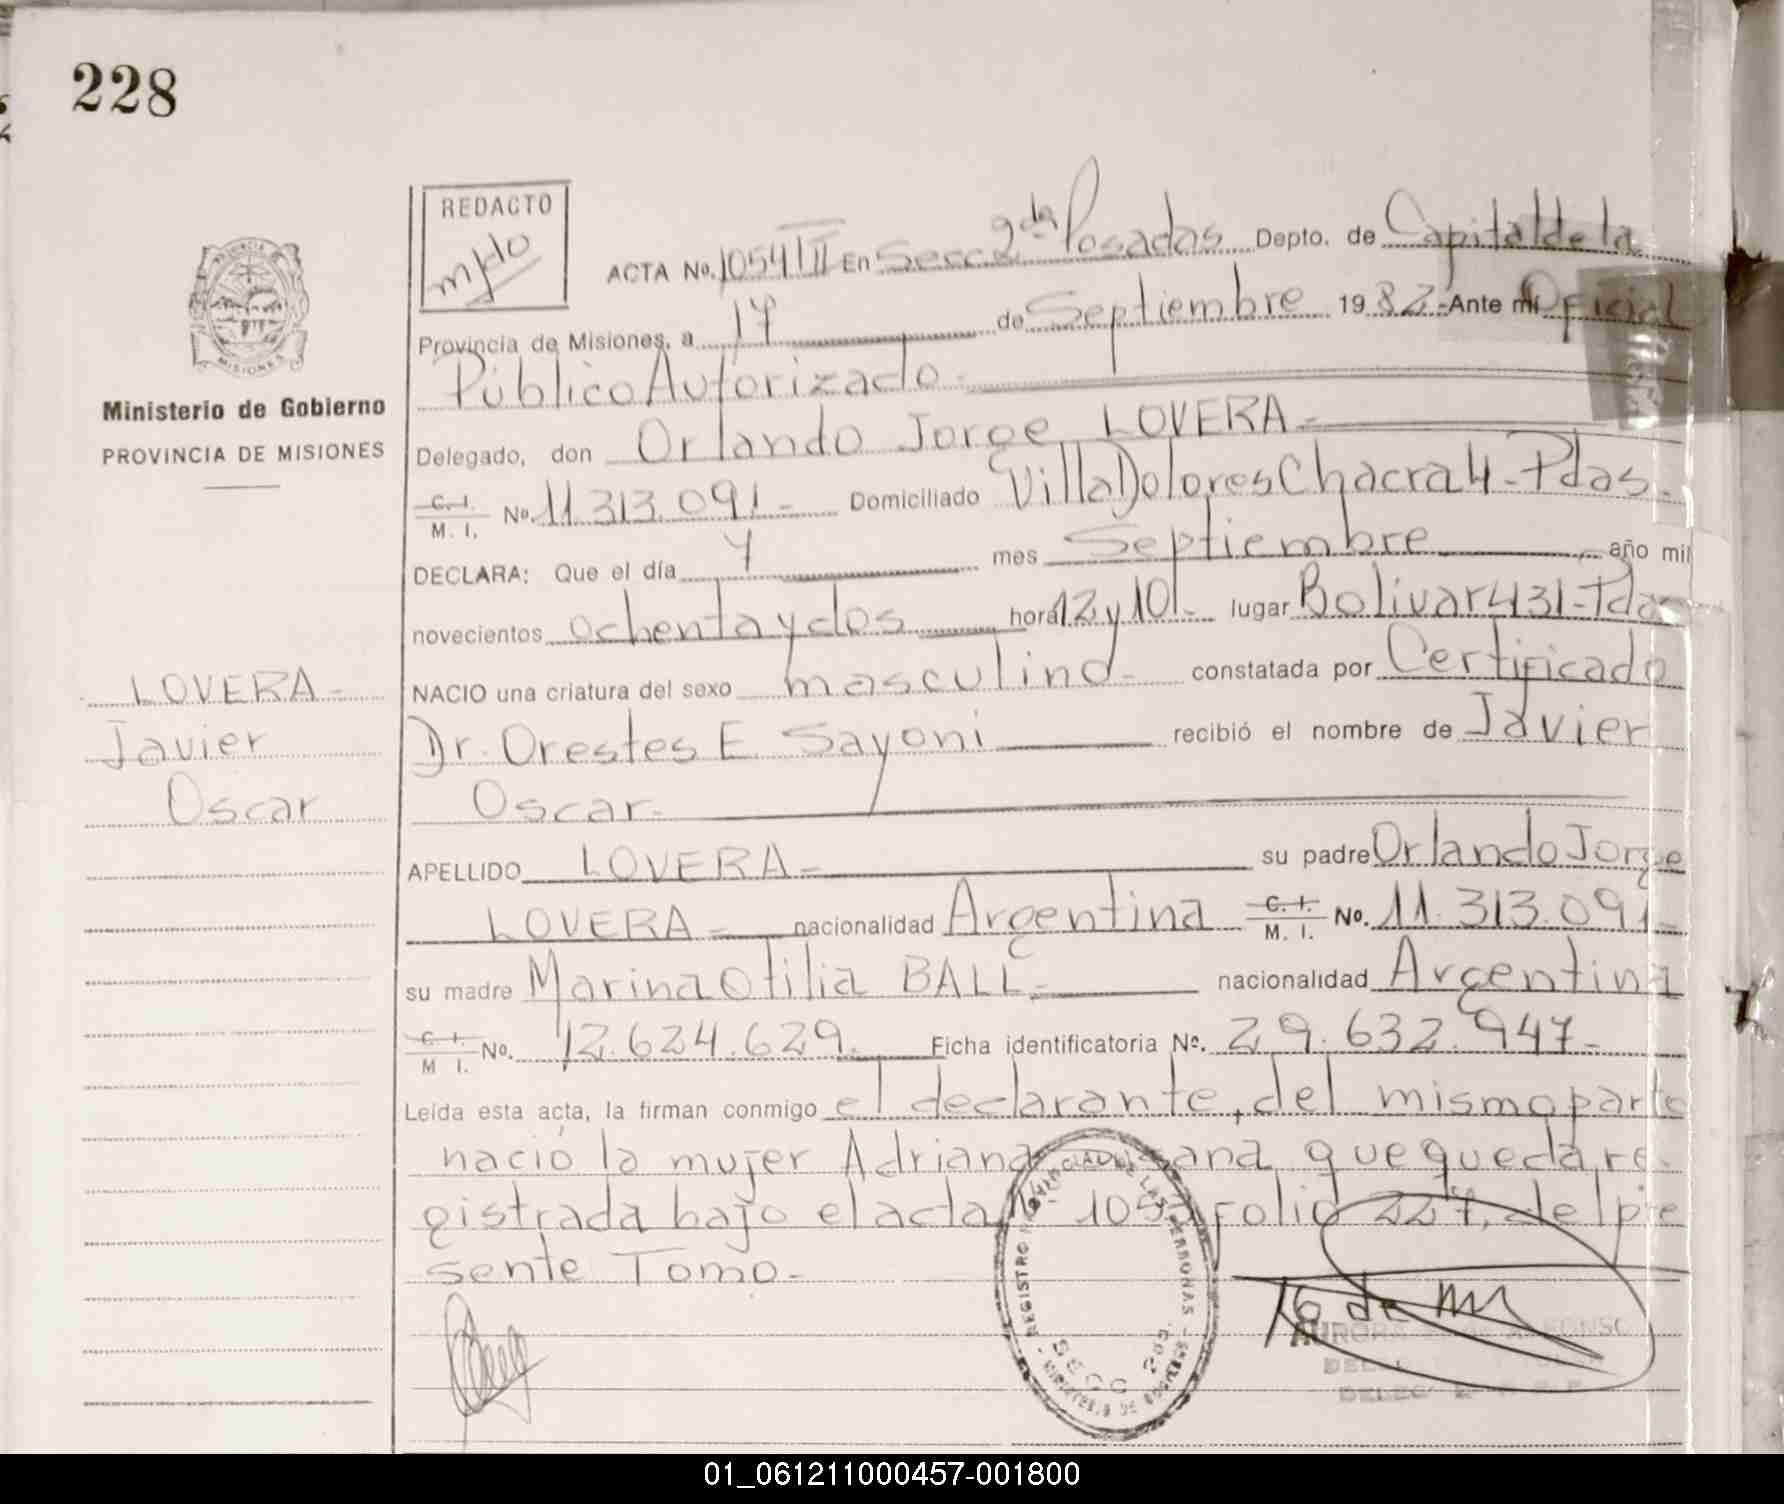 228
REDACTO
ACTA No. 1054 III En Secc 2da Posadas Depto. de Capital de la
Provincia de Misiones, a 17 de Septiembre 1982.- Ante mí Oficial
Público Autorizado.-
Delegado, don Orlando Jorge LOVERA.-
C. I.
M. I. No. 11.313.091.- Domiciliado Villa Dolores Chacra 4.- Pdas.
DECLARA: Que el día 7 mes Septiembre año mil
novecientos ochenta y dos hora 12 y 10.- lugar Bolivar 431-Pdas
NACIO una criatura del sexo masculino.- constatada por Certificado
Dr. Orestes E. Sayoni recibió el nombre de Javier
Oscar.-
APELLIDO LOVERA.- su padre Orlando Jorge
LOVERA.- nacionalidad Argentina C. I.
M. I. No. 11.313.091.-
su madre Marina Otilia BALL.- nacionalidad Argentina
C. I.
M I. No. 12.624.629.- Ficha identificatoria Nº. 29.632.947.-
Leída esta acta, la firman conmigo el declarante, del mismo parto
nació la mujer Adriana que queda re-
gistrada bajo el acta folio 227, del pre
sente Tomo.-
PROVINCIA
MISIONES
Ministerio de Gobierno
PROVINCIA DE MISIONES
LOVERA.-
Javier
Oscar
REGISTRO DE LAS PERSONAS
SECC 2da.
AURORA
01_061211000457-001800